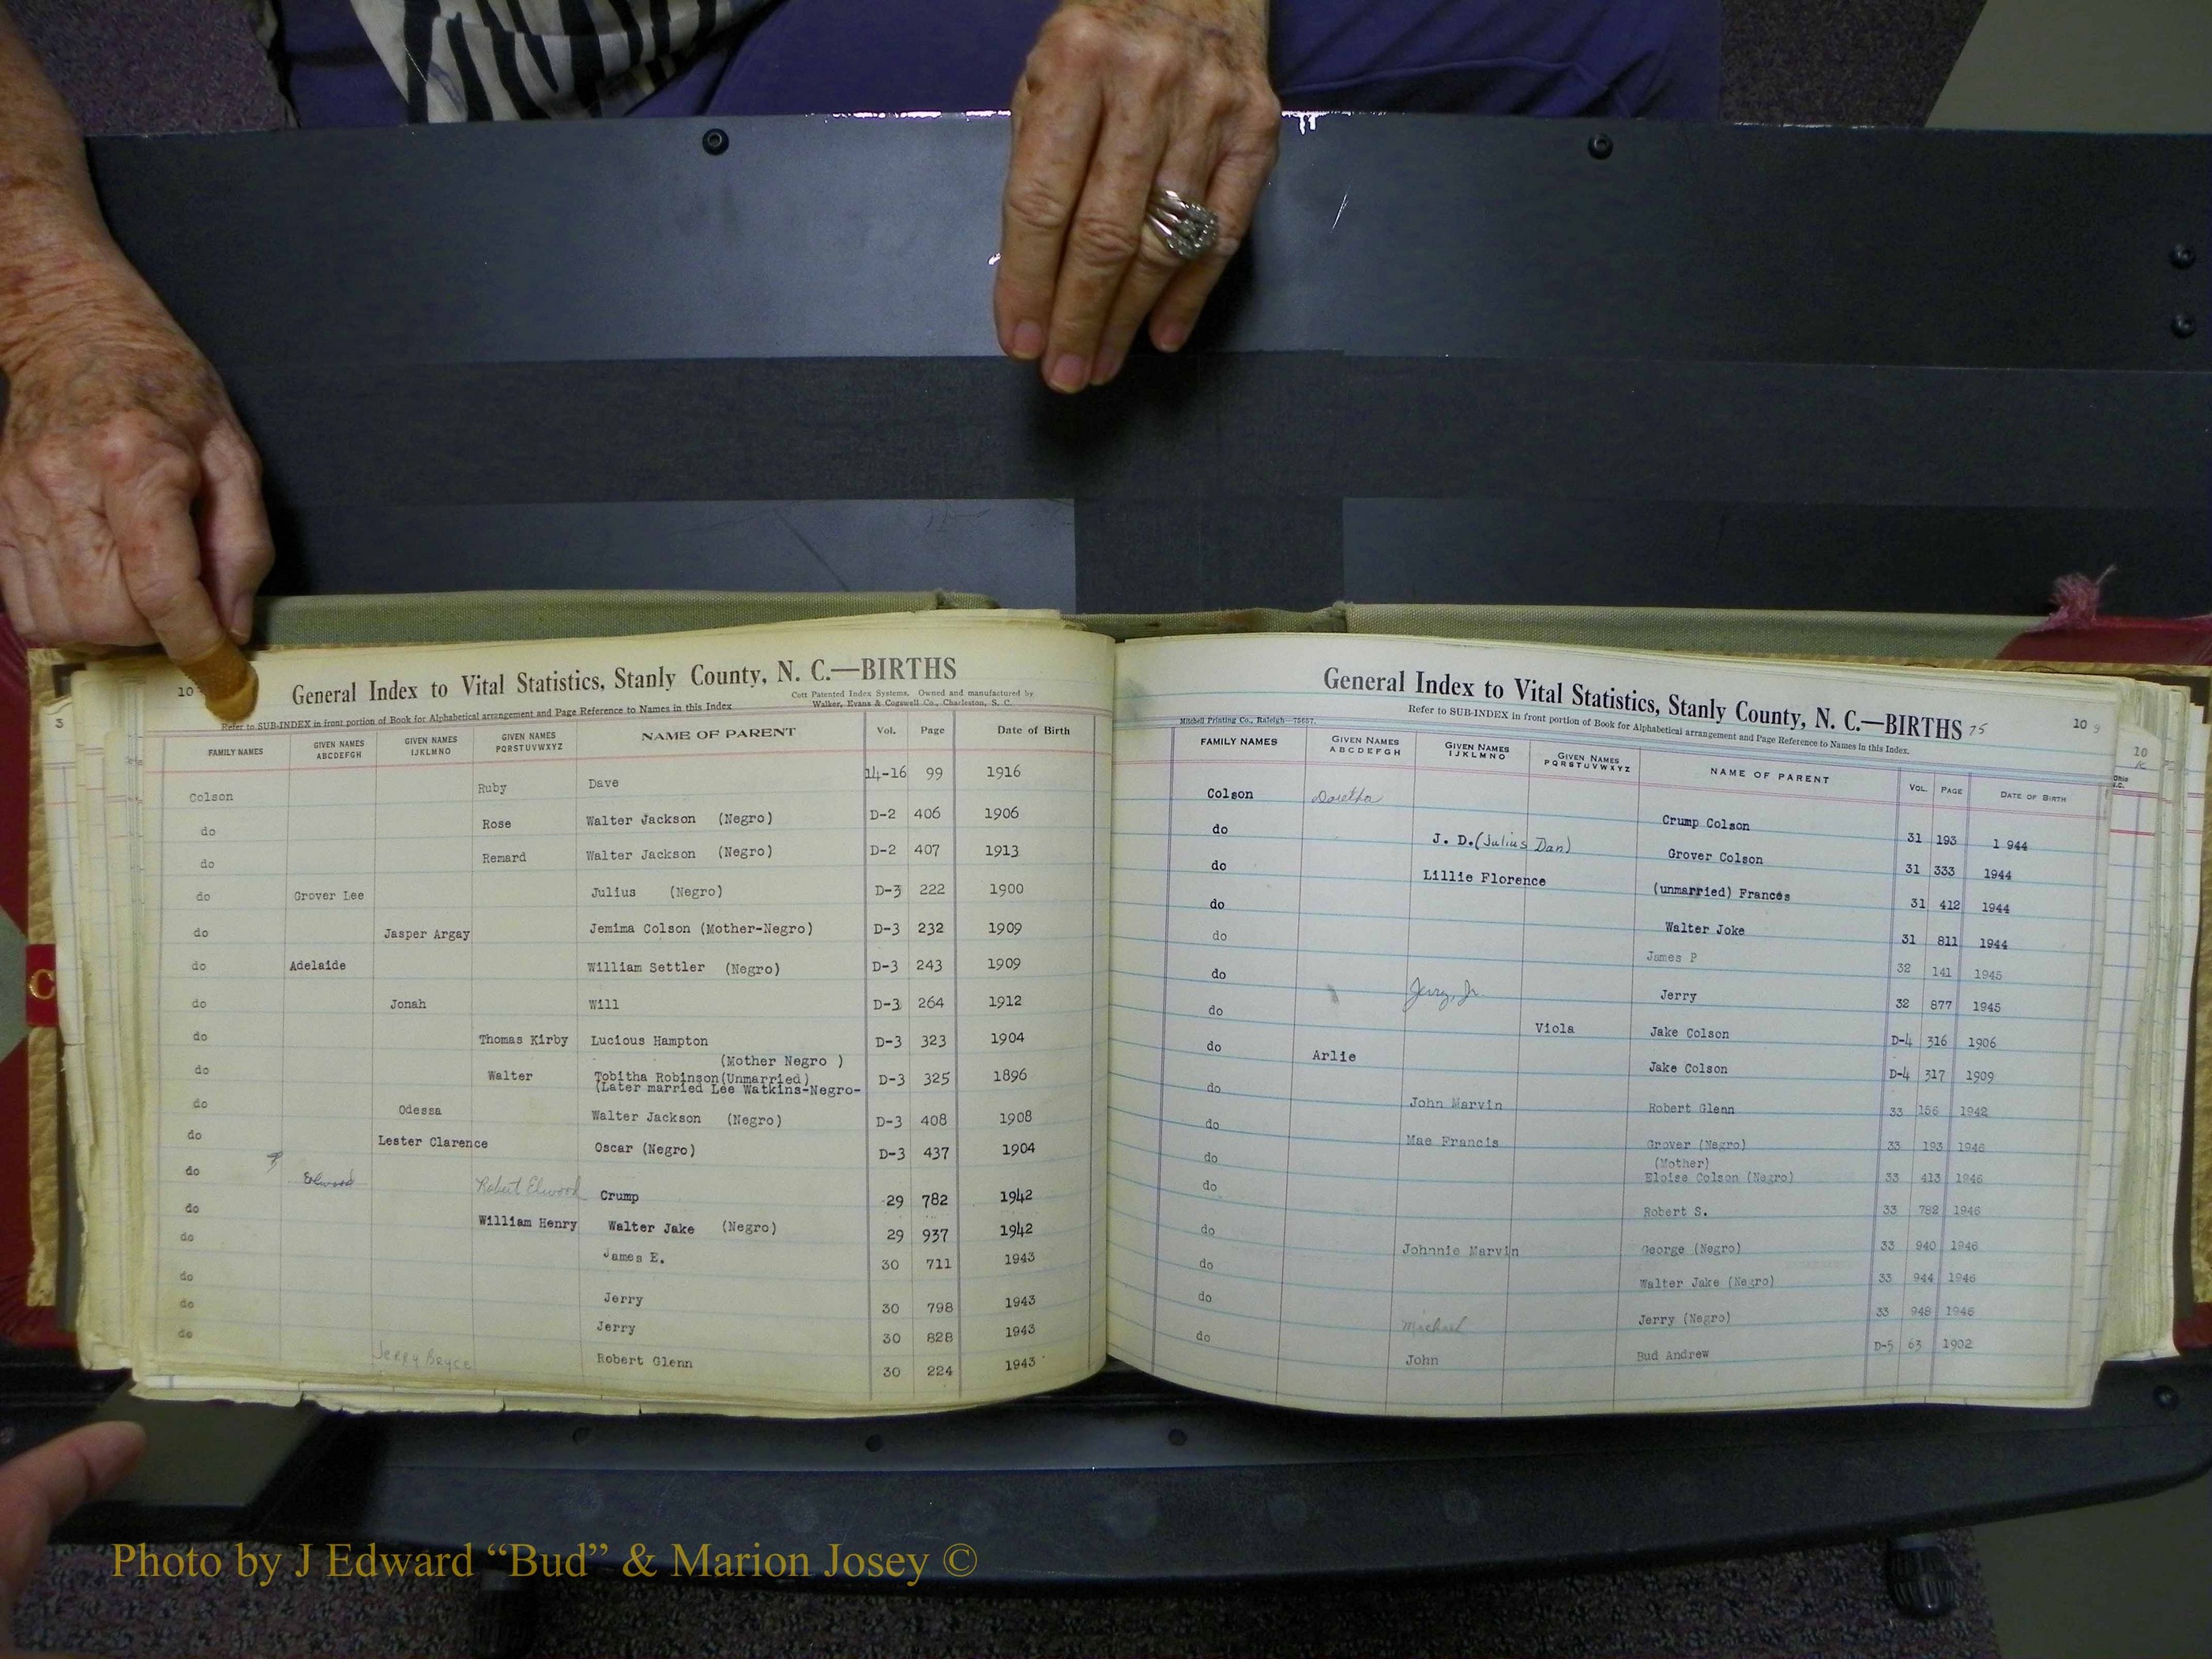 10
General Index to Vital Statistics, Stanly County, N. C.—BIRTHS
Cott Patented Index Systems. Owned and manufactured by
Walker, Evans & Cogswell Co., Charleston, S. C.
Refer to SUB-INDEX in front portion of Book for Alphabetical arrangement and Page Reference to Names in this Index
FAMILY NAMES GIVEN NAMES ABCDEFGH GIVEN NAMES IJKLMNO GIVEN NAMES PQRSTUVWXYZ NAME OF PARENT Vol. Page Date of Birth
Colson Ruby Dave 14-16 99 1916
do Rose Walter Jackson (Negro) D-2 406 1906
do Remard Walter Jackson (Negro) D-2 407 1913
do Grover Lee Julius (Negro) D-3 222 1900
do Jasper Argay Jemima Colson (Mother-Negro) D-3 232 1909
do Adelaide William Settler (Negro) D-3 243 1909
do Jonah Will D-3 264 1912
do Thomas Kirby Lucious Hampton D-3 323 1904
(Mother Negro )
do Walter Tobitha Robinson(Unmarried) D-3 325 1896
(Later married Lee Watkins-Negro-
do Odessa Walter Jackson (Negro) D-3 408 1908
do Lester Clarence Oscar (Negro) D-3 437 1904
do Elwood Robert Elwood Crump 29 782 1942
do William Henry Walter Jake (Negro) 29 937 1942
do James E. 30 711 1943
do Jerry 30 798 1943
do Jerry 30 828 1943
do Jerry Bryce Robert Glenn 30 224 1943
General Index to Vital Statistics, Stanly County, N. C.—BIRTHS 75
10 9
Mitchell Printing Co., Raleigh—75657.
Refer to SUB-INDEX in front portion of Book for Alphabetical arrangement and Page Reference to Names in this Index.
FAMILY NAMES GIVEN NAMES ABCDEFGH GIVEN NAMES IJKLMNO GIVEN NAMES PQRSTUVWXYZ NAME OF PARENT VOL. PAGE DATE OF BIRTH
Colson Doretha Crump Colson 31 193 1 944
do J. D. (Julius Dan) Grover Colson 31 333 1944
do Lillie Florence (unmarried) Frances 31 412 1944
do Walter Joke 31 811 1944
do James P 32 141 1945
do Jerry, Jr. Jerry 32 877 1945
do Viola Jake Colson D-4 316 1906
do Arlie Jake Colson D-4 317 1909
do John Marvin Robert Glenn 33 156 1942
do Mae Francis Grover (Negro) 33 193 1946
(Mother)
do Eloise Colson (Negro) 33 413 1946
do Robert S. 33 782 1946
do Johnnie Marvin George (Negro) 33 940 1946
do Walter Jake (Negro) 33 944 1946
do Michael Jerry (Negro) 33 948 1946
do John Bud Andrew D-5 63 1902
3
C
10
K
Photo by J Edward “Bud” & Marion Josey ©